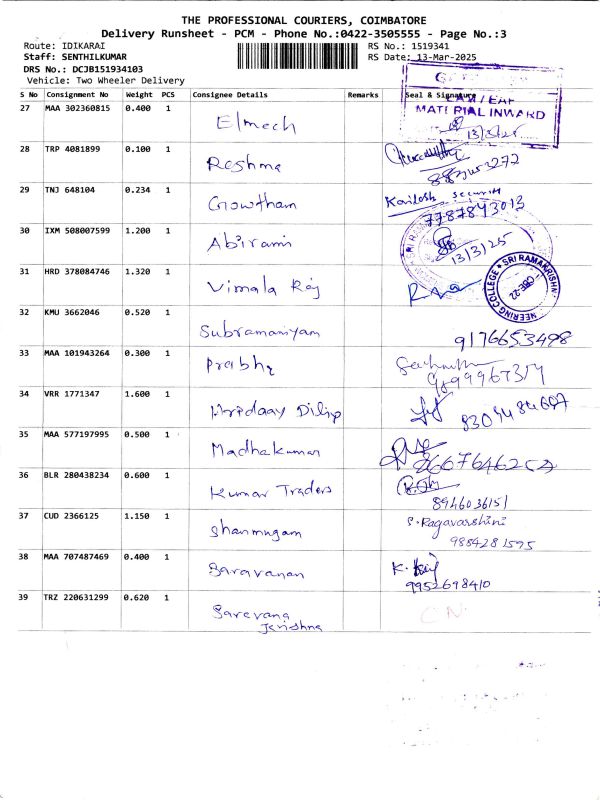 THE PROFESSIONAL COURIERS, COIMBATORE
Delivery Runsheet - PCM - Phone No.:0422-3505555 - Page No.:3
Route: IDIKARAI
RS No.: 1519341
Staff: SENTHILKUMAR
RS Date: 13-Mar-2025
DRS No.: DCJB151934103
Vehicle: Two Wheeler Delivery
S No Consignment No Weight PCS Consignee Details Remarks Seal & Signature
27 MAA 302360815 0.400 1 Elmech
MATERIAL INWARD
13/3/25
28 TRP 4081899 0.100 1 Reshma
29 TNJ 648104 0.234 1 Gowtham Kailash Security
7787843013
30 IXM 508007599 1.200 1 Abirami 13/3/25
31 HRD 378084746 1.320 1 Vimala Raj
SRI RAMAKRISHN
NEERING COLLEGE
CBE-22
32 KMU 3662046 0.520 1 Subramaniyam 9176653498
33 MAA 101943264 0.300 1 Prabhu
34 VRR 1771347 1.600 1 Hridaay Dilip
35 MAA 577197995 0.500 1 Madhakumar
36 BLR 280438234 0.600 1 Kumar Traders
8946036151
37 CUD 2366125 1.150 1 Shanmugam S. Ragavarshini
9884281595
38 MAA 707487469 0.400 1 Saravanan K.
9952698410
39 TRZ 220631299 0.620 1 Saravana
Krishna
CN